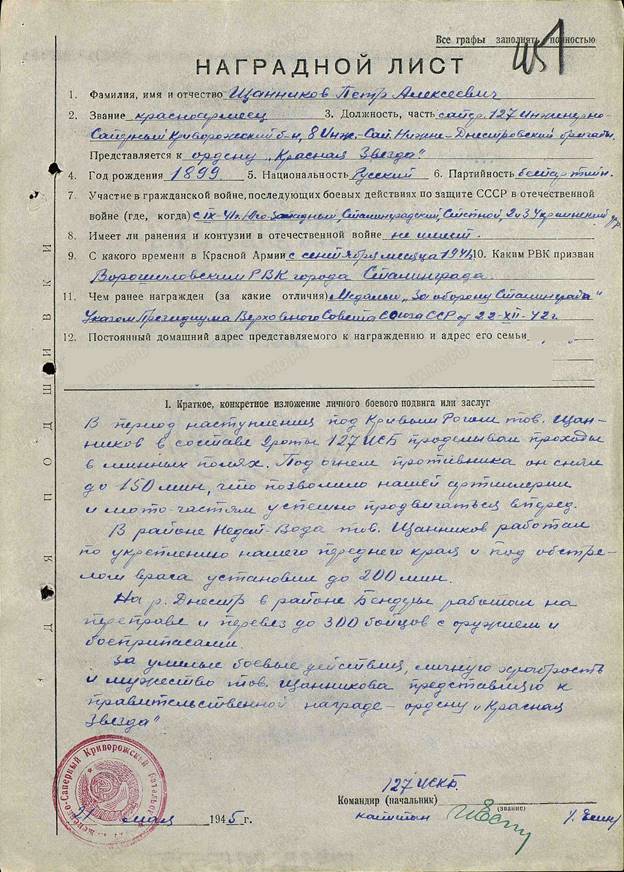 Все графы заполнять полностью
НАГРАДНОЙ ЛИСТ
1. Фамилия, имя и отчество Щанников Петр Алексеевич
2. Звание красноармеец 3. Должность, часть сапер 127 Инженерно-
Саперный Криворожский б-н, 8 Инж.-Сап. Нижне-Днестровской бригады
Представляется к ордену „Красная Звезда"
4. Год рождения 1899 5. Национальность Русский 6. Партийность беспартийн.
7. Участие в гражданской войне, последующих боевых действиях по защите СССР в отечественной
войне (где, когда) с IX-41г. Юго-Западный, Сталинградский, Степной, 2 и 3 Украинский фр.
8. Имеет ли ранения и контузии в отечественной войне не имеет.
9. С какого времени в Красной Армии с сентября месяца 1941 10. Каким РВК призван
Ворошиловским РВК города Сталинграда.
11. Чем ранее награжден (за какие отличия) Медалью „За оборону Сталинграда"
Указом Президиума Верховного Совета Союза ССР от 22-XII-42г.
12. Постоянный домашний адрес представляемого к награждению и адрес его семьи
I. Краткое, конкретное изложение личного боевого подвига или заслуг
В период наступления под Кривым Рогом тов. Щан-
ников в составе 2 роты 127 ИСБ проделывал проходы
в минных полях. Под огнем противника он снял
до 150 мин, что позволило нашей артиллерии
и мото-частям успешно продвигаться вперед.
В районе Недай-Вода тов. Щанников работал
по укреплению нашего переднего края и под обстре-
лом врага установил до 200 мин.
На р. Днестр в районе Бендеры работал на
переправе и перевез до 300 бойцов с оружием и
боеприпасами.
За умелые боевые действия, личную храбрость
и мужество тов. Щанникова представляю к
правительственной награде - ордену „Красная
Звезда"
127 ИСКБ.
Командир (начальник)
(звание)
капитан
мая 1945 г.
ДЛЯ ПОДШИВКИ
Саперный Криворожский батальон